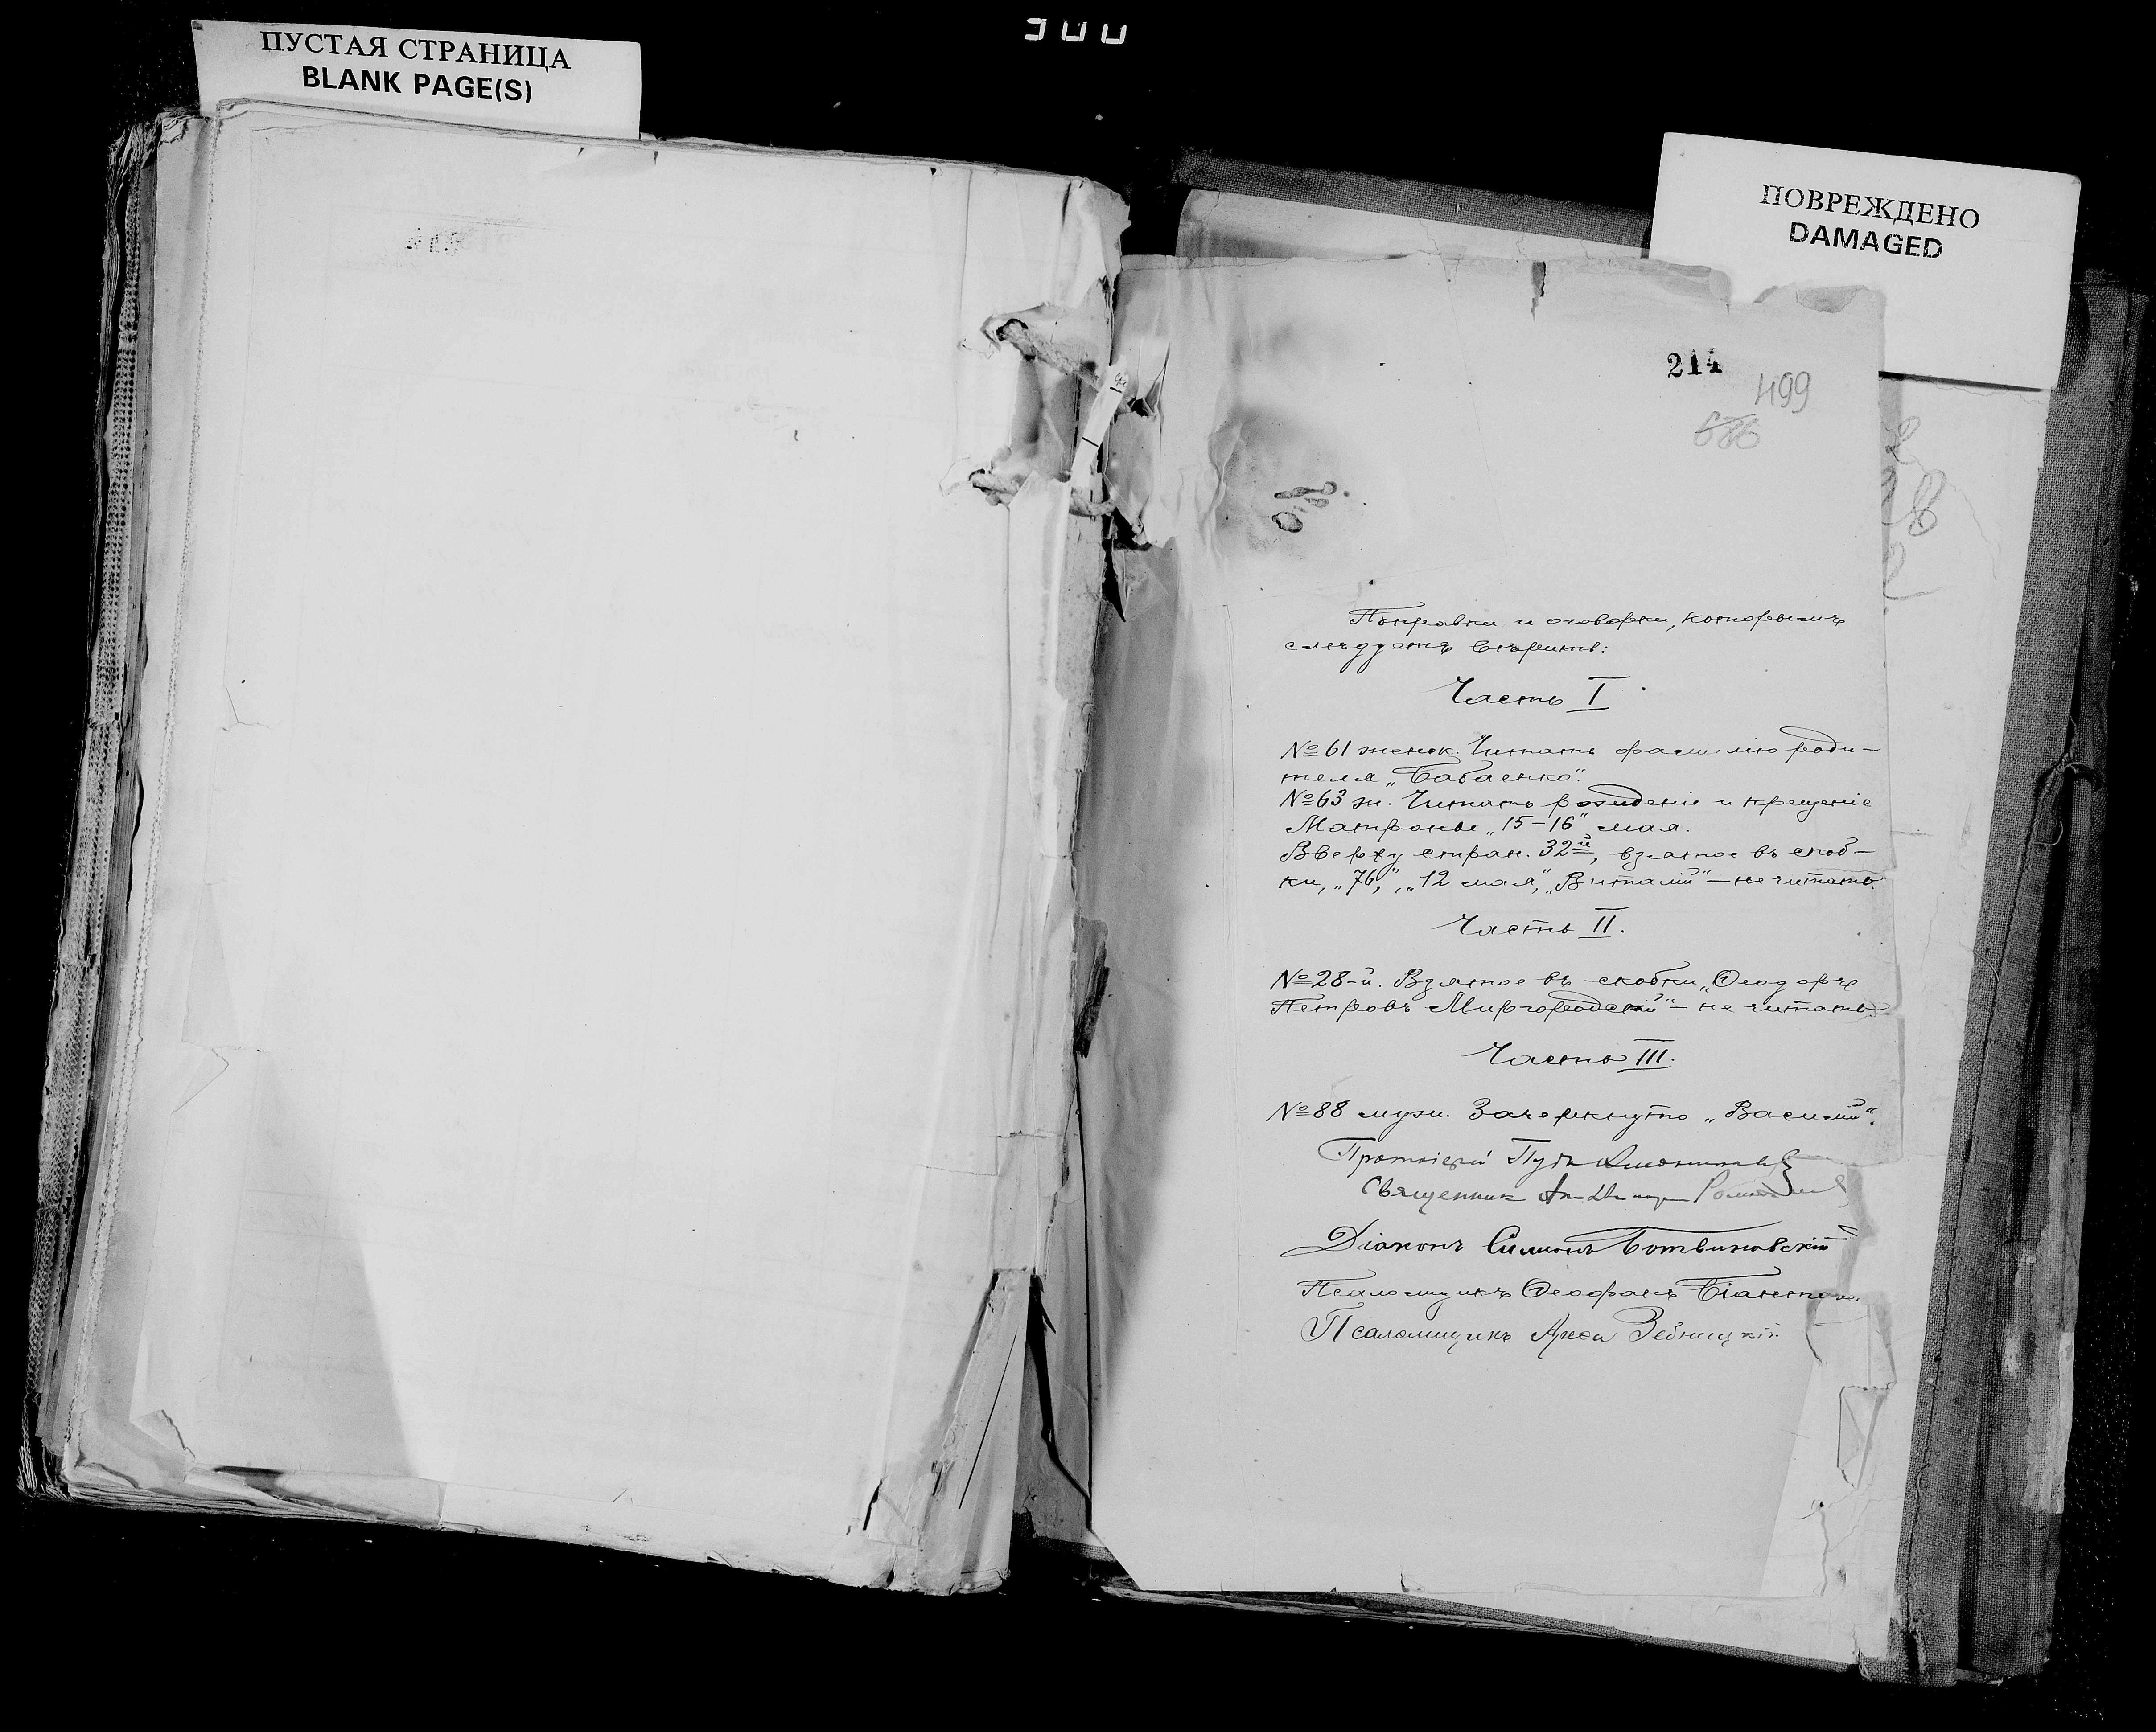 ПУСТАЯ СТРАНИЦА
BLANK PAGE(S)
ПОВРЕЖДЕНО
DAMAGED
214
499
686
Поправки и оговорки, которымъ
слѣдуетъ вѣрить:
Часть I
№ 61 женск. Читать фамилію роди-
теля „Бабаенко".
№ 63 ж. Читать рожденіе и крещеніе
Матроны „15-16" мая.
Вверху стран. 32й, взятое въ скоб-
ки, „76", „12 мая", „Виталій" — не читать.
Часть II.
№ 28-й. Взятое въ скобки „Ѳеодоръ
Петровъ Миргородскій" — не читать.
Часть III.
№ 88 муж. Зачеркнуто „Василій".
Протоіерей
Священник
Діаконъ Симеонъ Ботвиновскій
Псаломщикъ Ѳеофанъ
Псаломщикъ